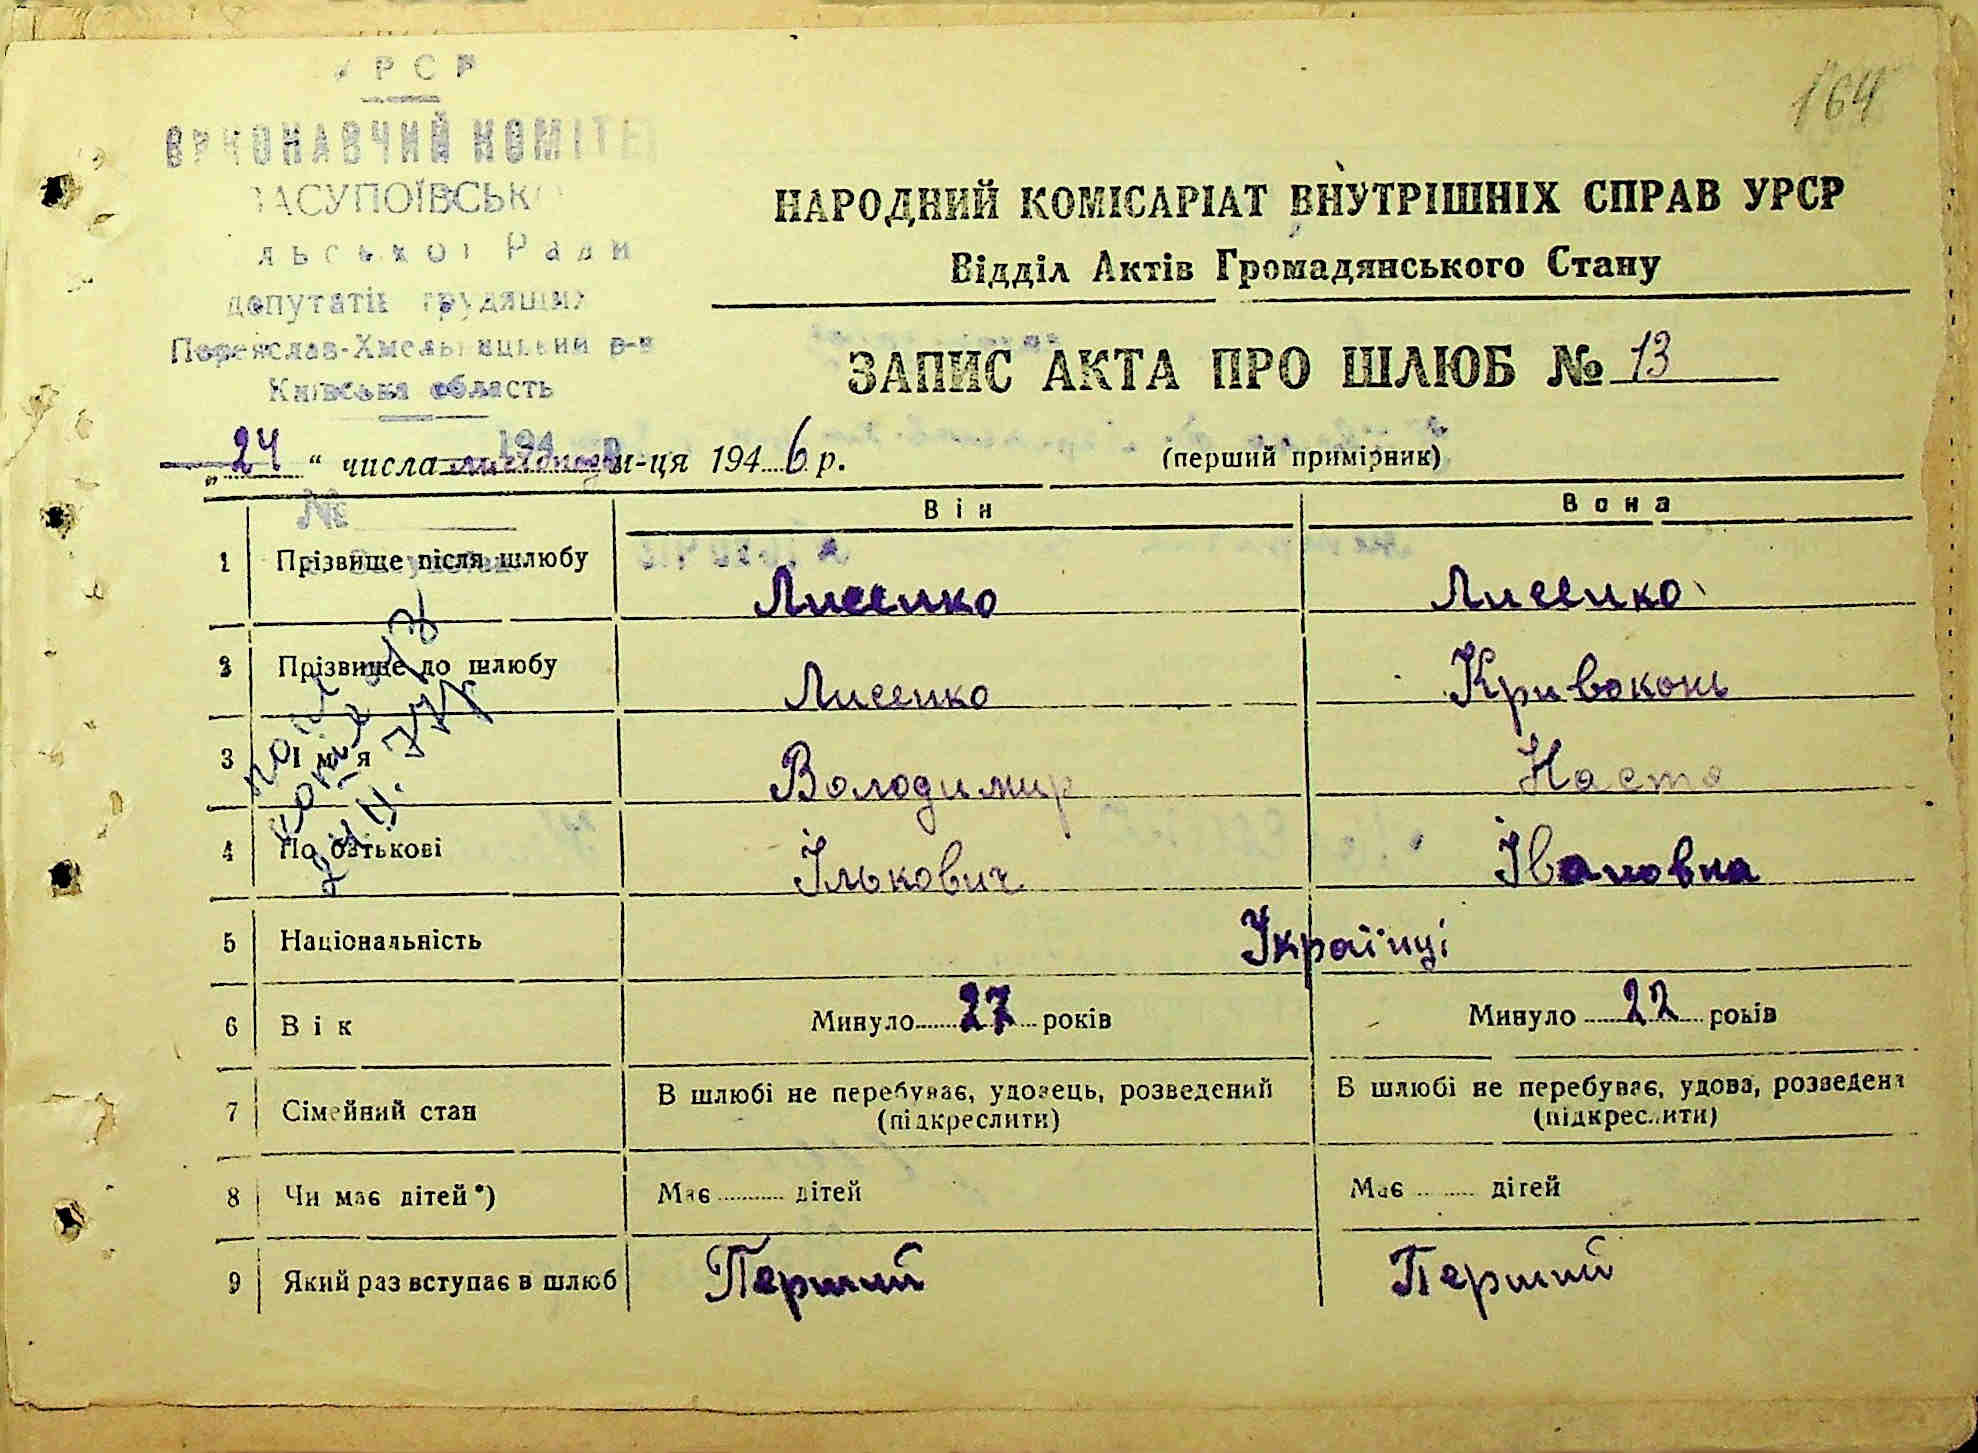 УРСР
ВИКОНАВЧИЙ КОМІТЕ
ЗАСУПОЇВСЬКО
льської Ради
депутатів трудящих
Переяслав-Хмельницький р-н
Київська область
194 р.
№
164
НАРОДНИЙ КОМІСАРІАТ ВНУТРІШНІХ СПРАВ УРСР
Відділ Актів Громадянського Стану
ЗАПИС АКТА ПРО ШЛЮБ № 13
„ 24 “ числа листопад м-ця 194 6 р.
(перший примірник)
Він Вона
1 Прізвище після шлюбу Лисенко Лисенко
2 Прізвище до шлюбу Лисенко Кривоконь
3 Ім'я Володимир Настя
4 По батькові Ількович Івановна
5 Національність Українці
6 Вік Минуло 27 років Минуло 22 років
7 Сімейний стан В шлюбі не перебуває, удовець, розведений В шлюбі не перебуває, удова, розведена
(підкреслити) (підкреслити)
8 Чи має дітей*) Має дітей Має дітей
9 Який раз вступає в шлюб Перший Перший